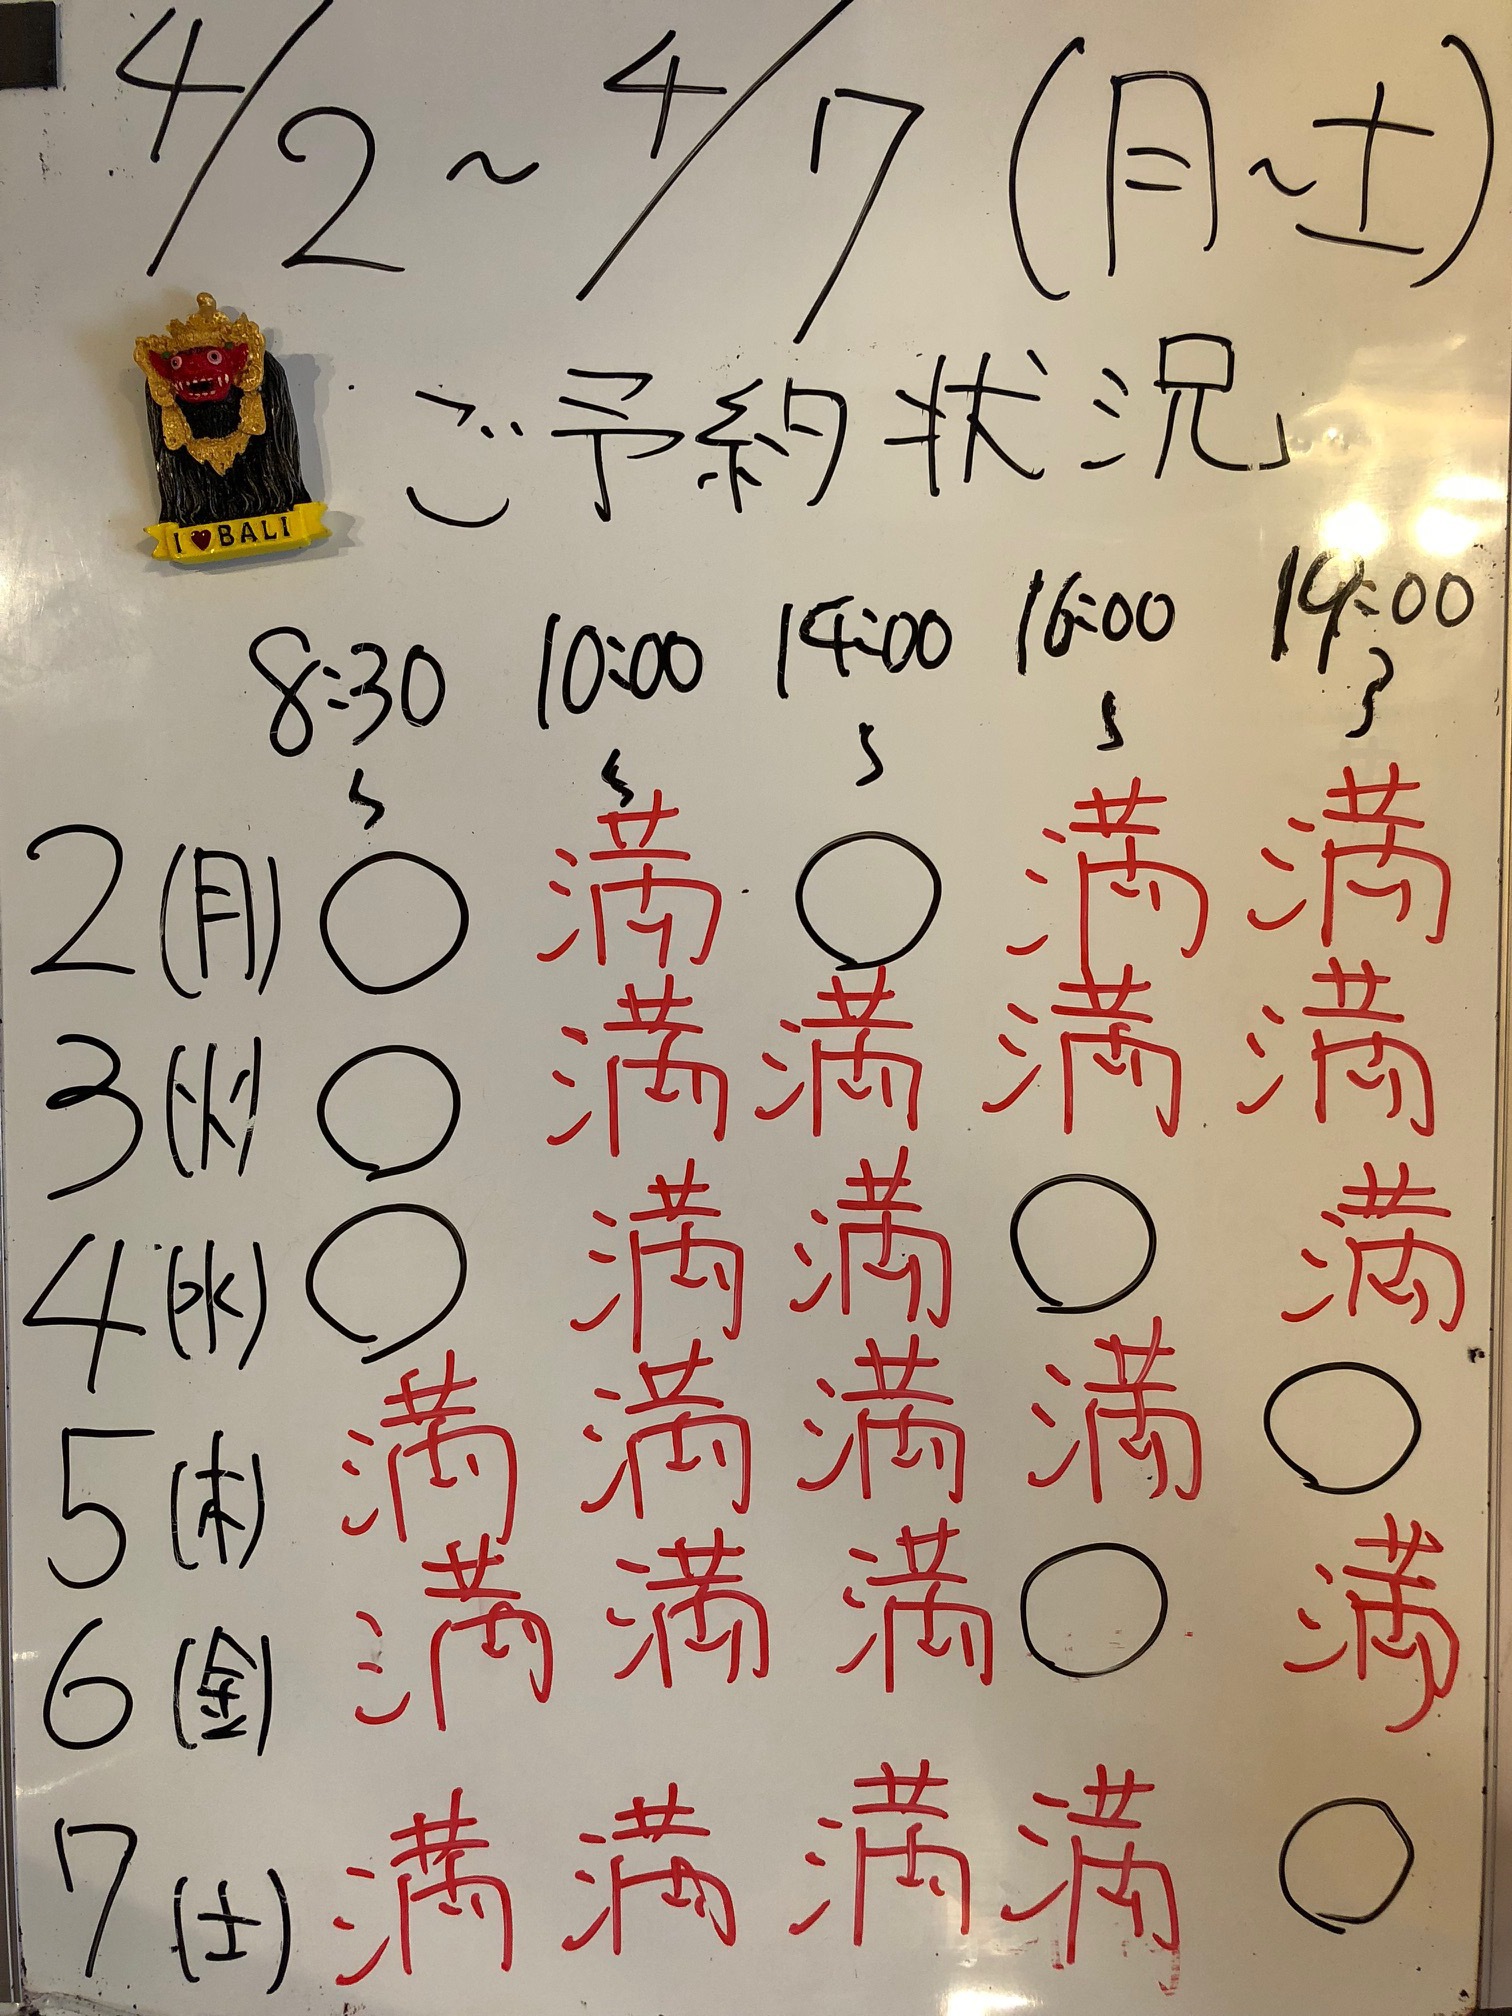 4/2～4/7(月～土)
ご予約状況」
I ♥ BALI
8:30～ 10:00～ 14:00～ 16:00～ 19:00～
2(月) ○ 満 ○ 満 満
3(火) ○ 満 満 満 満
4(水) ○ 満 満 ○ 満
5(木) 満 満 満 満 ○
6(金) 満 満 満 ○ 満
7(土) 満 満 満 満 ○